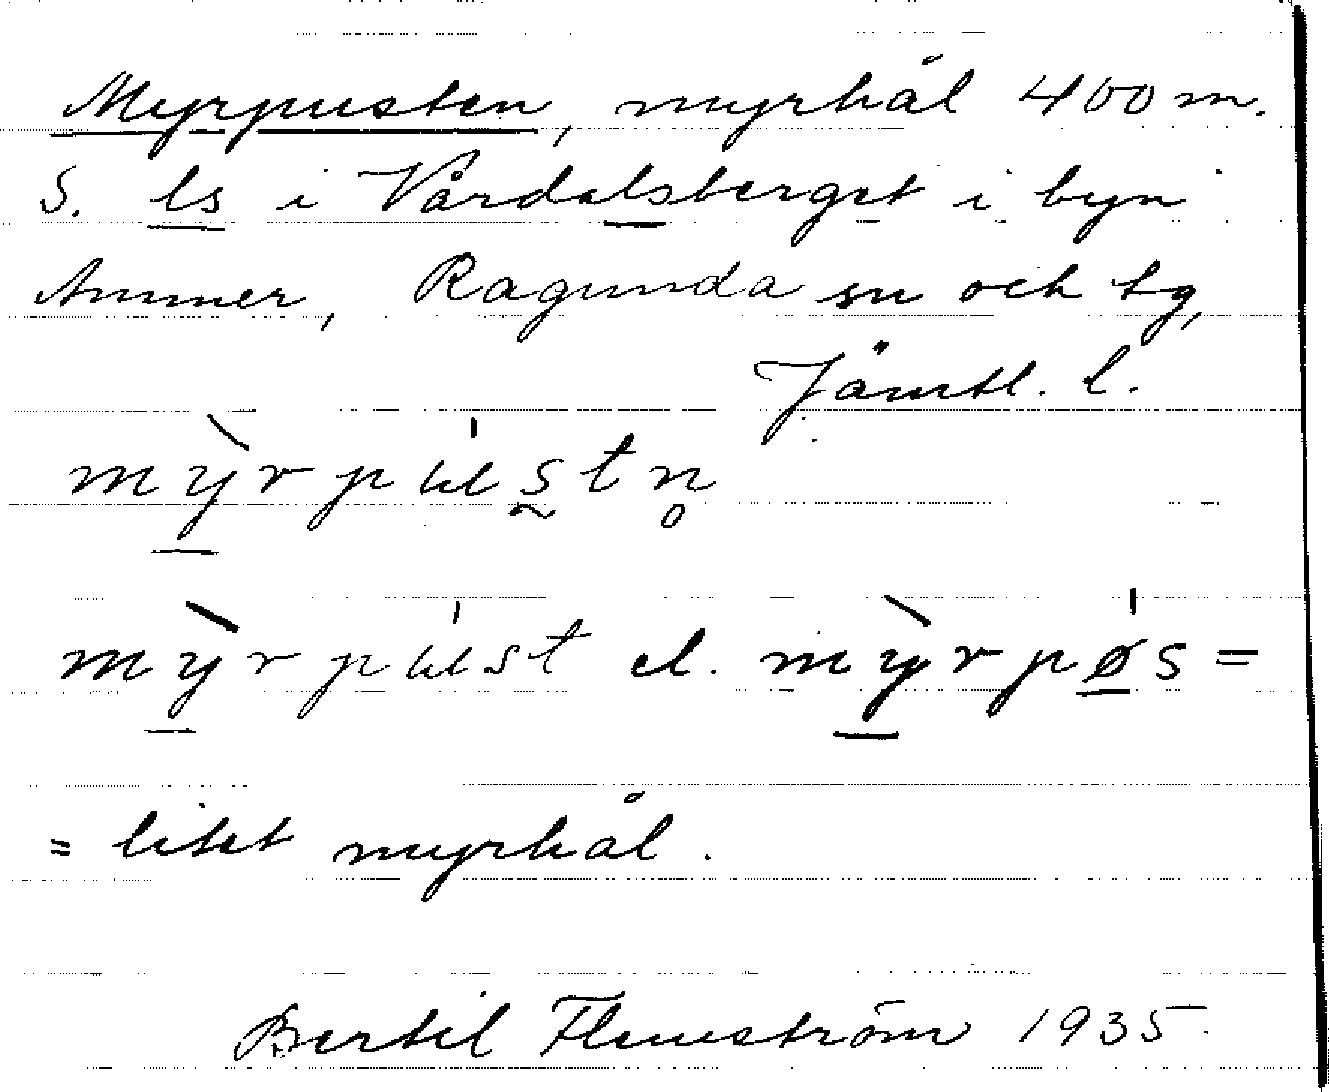 Myrpusten, myrhål 400 m.
S. ls i Vårdalsberget i byn
Ammer, Ragunda sn och tg,
Jämtl. l.
mỳrpustn̥
mỳrpust el. mỳrpøs =
= litet myrhål.
Bertil Flemström 1935.